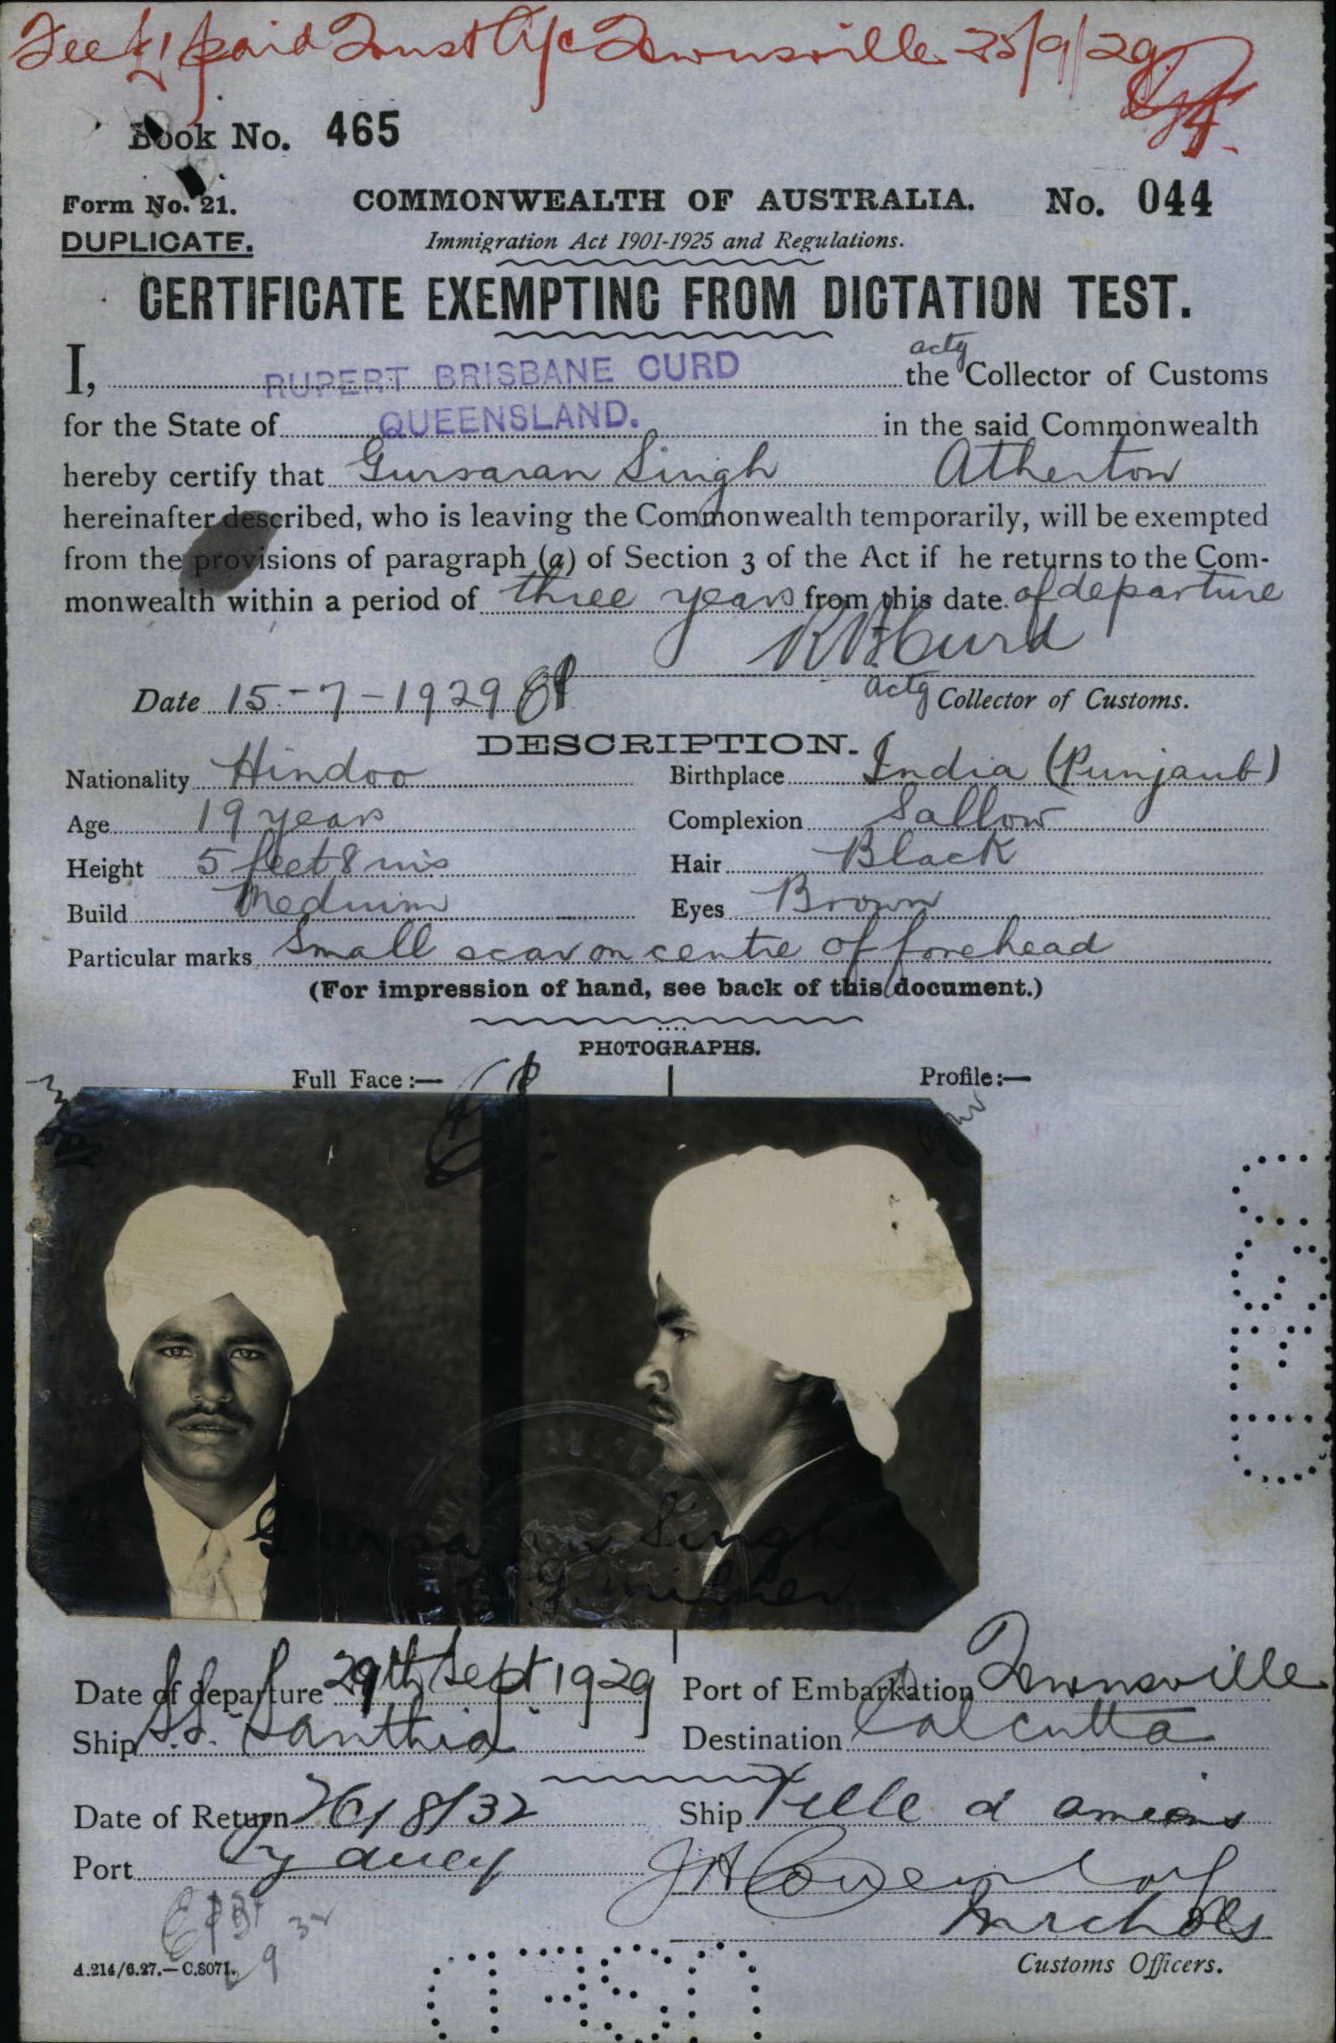 Fee £1 paid Trust A/c Townsville 25/9/29
Book No. 465
Form No. 21.
COMMONWEALTH OF AUSTRALIA.
No. 044
DUPLICATE.
Immigration Act 1901-1925 and Regulations.
CERTIFICATE EXEMPTING FROM DICTATION TEST.
I, RUPERT BRISBANE CURD the actg Collector of Customs
for the State of QUEENSLAND. in the said Commonwealth
hereby certify that Gursaran Singh Atherton
hereinafter described, who is leaving the Commonwealth temporarily, will be exempted
from the provisions of paragraph (a) of Section 3 of the Act if he returns to the Com-
monwealth within a period of three years from this date of departure
R B Curd
Date 15-7-1929 actg Collector of Customs.
DESCRIPTION.
Nationality Hindoo Birthplace India (Punjaub)
Age 19 years Complexion Sallow
Height 5 feet 8 ins Hair Black
Build Medium Eyes Brown
Particular marks Small scar on centre of forehead
(For impression of hand, see back of this document.)
PHOTOGRAPHS.
Full Face:— Profile:—
Gursaran Singh
Date of departure 29th Sept. 1929 Port of Embarkation Townsville
Ship S.S. Santhia Destination Calcutta
Date of Return 26/8/32 Ship Ville d amiens
Port Sydney
Nicholls
A.214/6.27.—C.8071.
Customs Officers.
USED
USED